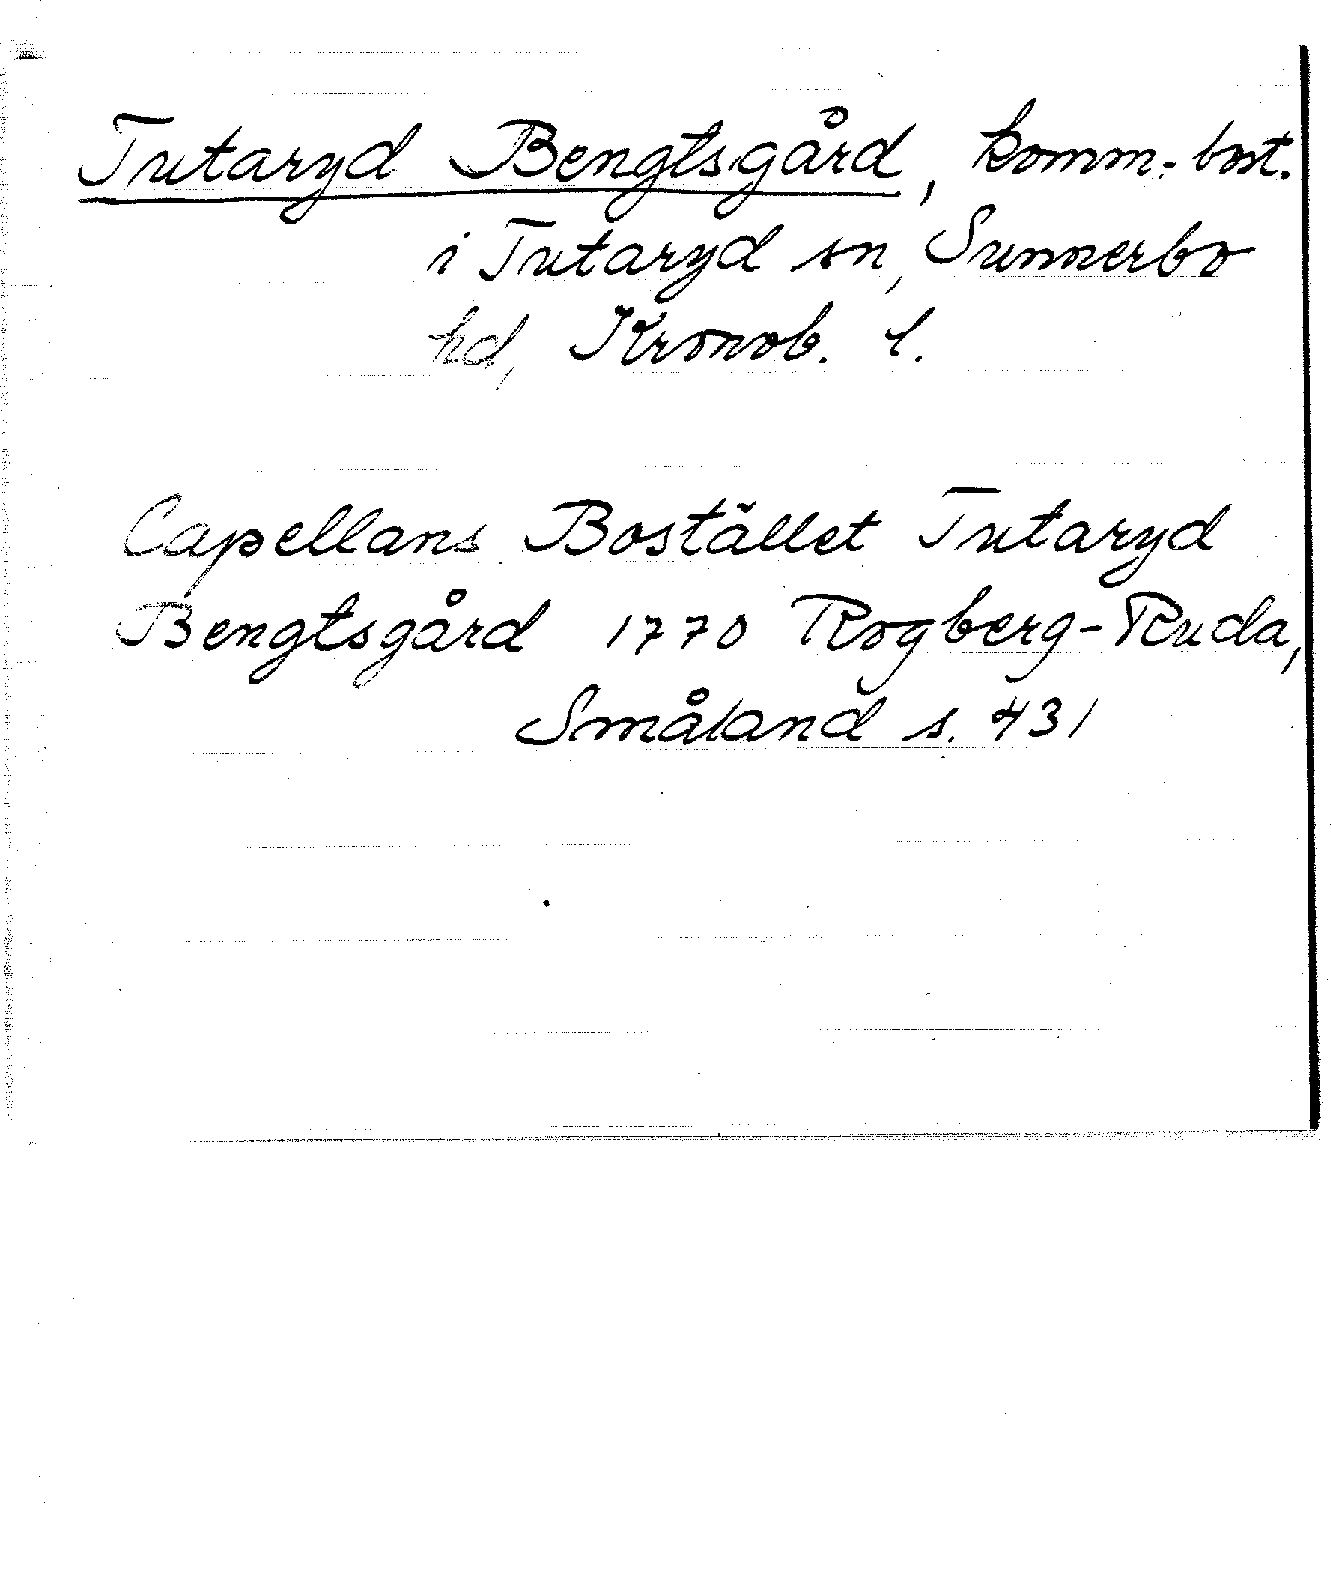 Tutaryd Bengtsgård, komm.bost.
i Tutaryd sn, Sunnerbo
hd, Kronob. l.
Capellans Bostället Tutaryd
Bengtsgård 1770 Rogberg-Ruda,
Småland s. 431